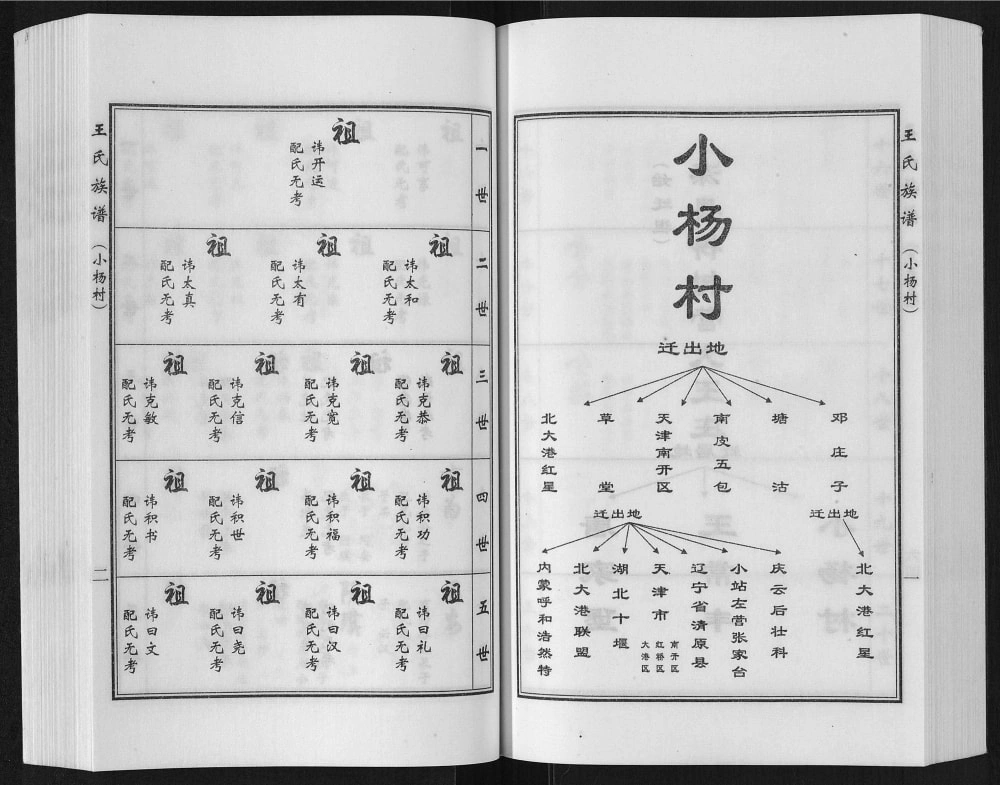 王氏族谱（小杨村）
一
小杨村
迁出地
邓庄子
塘沽
南皮五包
天津南开区
草堂
北大港红星
迁出地
北大港红星
迁出地
庆云后壮科
小站左营张家台
辽宁省清原县
天津市
南开区
红桥区
大港区
湖北十堰
北大港联盟
内蒙呼和浩然特
一世
祖
讳开运
配氏无考
二世
祖
讳太和
配氏无考
祖
讳太有
配氏无考
祖
讳太真
配氏无考
三世
祖
讳克恭
配氏无考
祖
讳克宽
配氏无考
祖
讳克信
配氏无考
祖
讳克敏
配氏无考
四世
祖
讳积功
配氏无考
祖
讳积福
配氏无考
祖
讳积世
配氏无考
祖
讳积书
配氏无考
五世
祖
讳曰礼
配氏无考
祖
讳曰汉
配氏无考
祖
讳曰尧
配氏无考
祖
讳曰文
配氏无考
王氏族谱（小杨村）
二